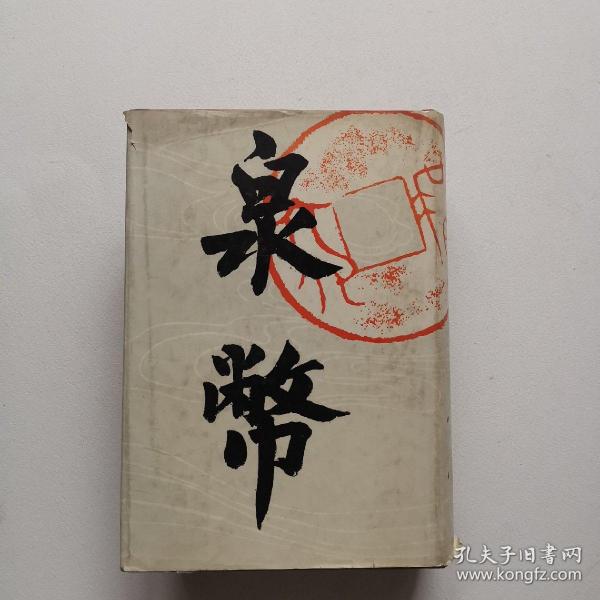 泉
幣
孔夫子旧書网
www.kongfz.com